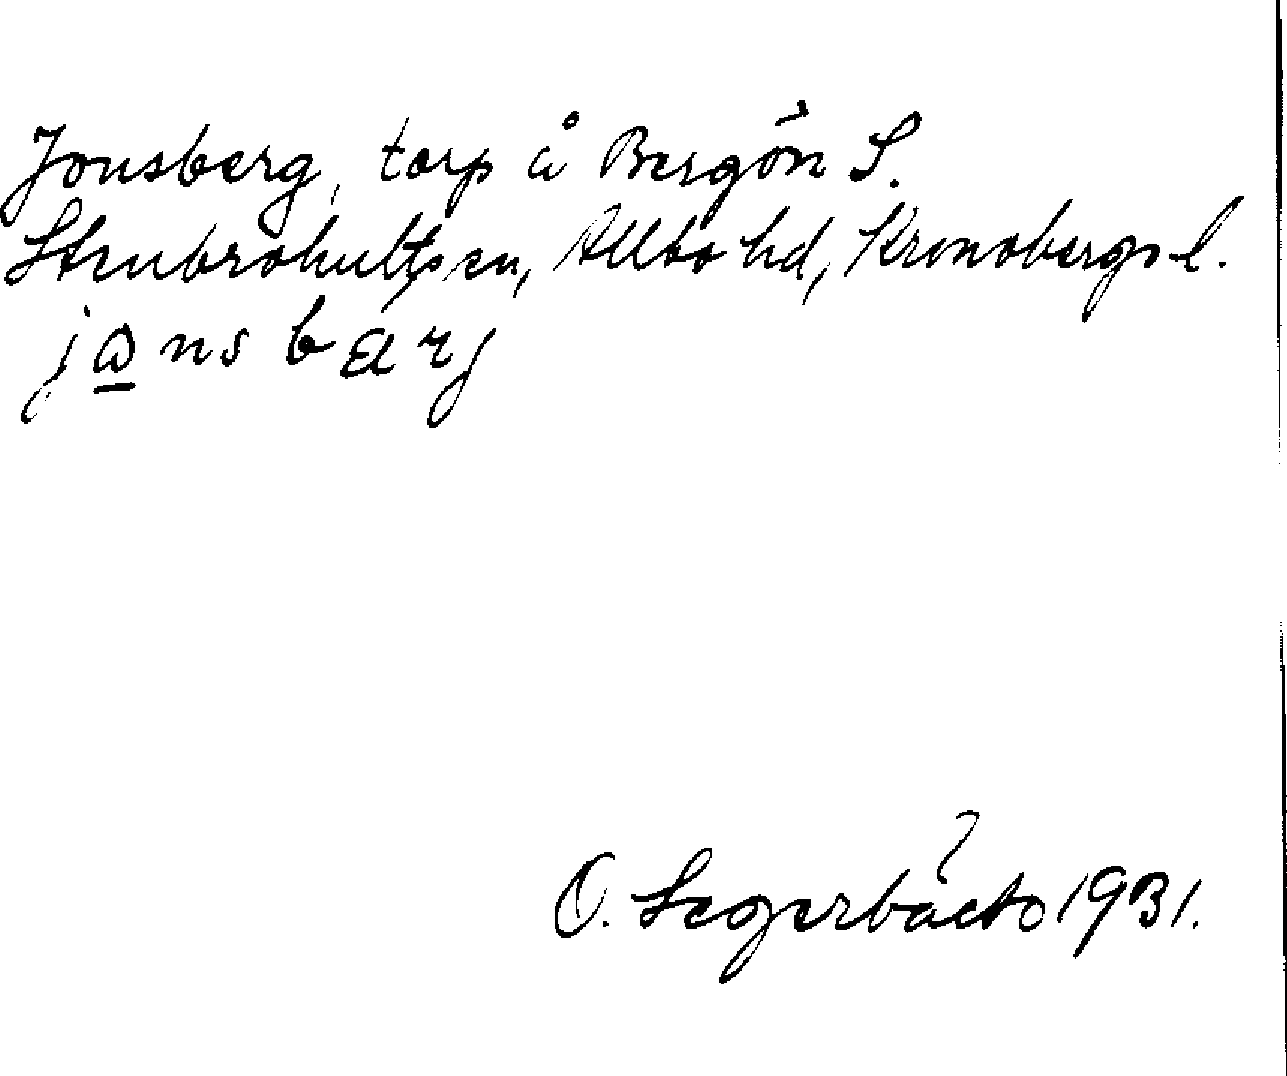 Jonsberg, torp å Bergön S.
Stenbrohults sn, Allbo hd, Kronobergs l.
jωns bærj
O. Segerbäck 1931.